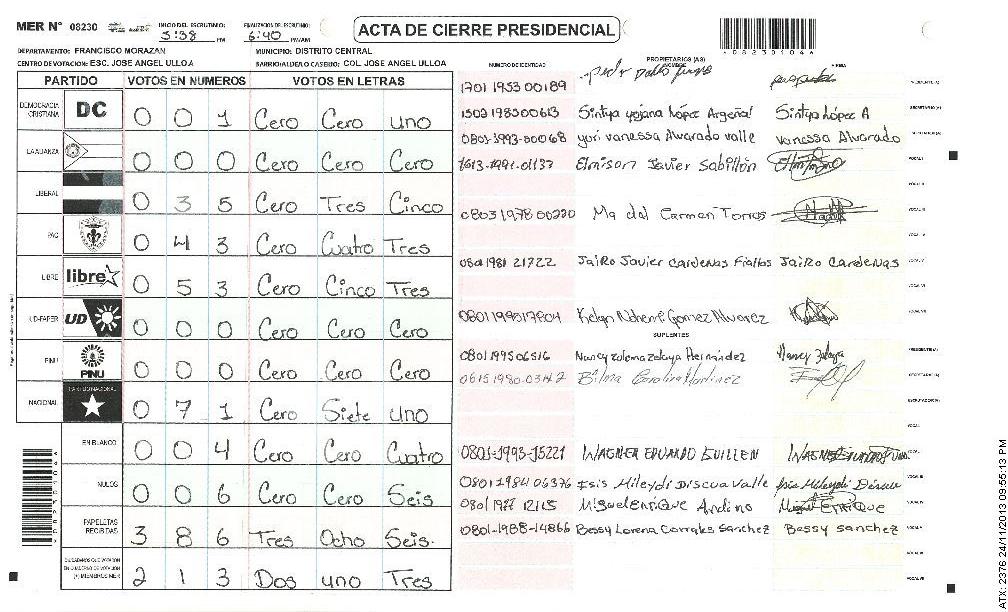 MER N° 08230 INICIO DEL ESCRUTINIO: 5:38 PM FINALIZACION DEL ESCRUTINIO: 6:40 PM/AM
ACTA DE CIERRE PRESIDENCIAL
082301046
DEPARTAMENTO: FRANCISCO MORAZAN MUNICIPIO: DISTRITO CENTRAL
CENTRO DE VOTACION: ESC. JOSE ANGEL ULLOA BARRIO/ALDEA O CASERIO: COL JOSE ANGEL ULLOA
PARTIDO VOTOS EN NUMEROS VOTOS EN LETRAS
DEMOCRACIA CRISTIANA DC 0 0 1 Cero Cero uno
LA ALIANZA 0 0 0 Cero Cero Cero
LIBERAL 0 3 5 Cero Tres Cinco
PAC 0 4 3 Cero Cuatro Tres
LIBRE libre 0 5 3 Cero Cinco Tres
UD-FAPER UD 0 0 0 Cero Cero Cero
PINU PINU 0 0 0 Cero Cero Cero
NACIONAL PARTIDO NACIONAL 0 7 1 Cero Siete uno
EN BLANCO 0 0 4 Cero Cero Cuatro
NULOS 0 0 6 Cero Cero Seis
PAPELETAS RECIBIDAS 3 8 6 Tres Ocho Seis.
CIUDADANOS QUE VOTARON EN CUADERNO DE VOTACION (+) MIEMBROS MER 2 1 3 Dos uno Tres
NUMERO DE IDENTIDAD PROPIETARIOS (AS) NOMBRE FIRMA
1701 1953 00189 PRESIDENTE(A)
1502 1985 00613 Sintya yojana lópez Argeñal Sintya lópez A SECRETARIO(A)
0801-1993-00068 yori vanessa Alvarado valle vanessa Alvarado
1613-1991-01137 Elmison Javier Sabillón VOCAL I
0803 1978 00220 Ma del Carmen Torres
0801 1981 21722 Jairo Javier Cardenas Fiallos Jairo Cardenas
Gomez Alvarez
SUPLENTES
0801 1995 06516 Nancy zulema zelaya Hernández Nancy zelaya PRESIDENTE(A)
0615 1980-03142 Bilma Martinez SECRETARIO(A)
ESCRUTADOR(A)
0801-1993-15221 WAGNER EDUARDO GUILLEN
0801 1984 06376 Isis Mileydi Discua Valle Isis Mileydi Discua
Miguel Enrique Andino Miguel Enrique
0801-1988-14866 Bessy Lorena Corrales Sanchez Bessy Sanchez
ATX: 2376 24/11/2013 09:55:13 PM